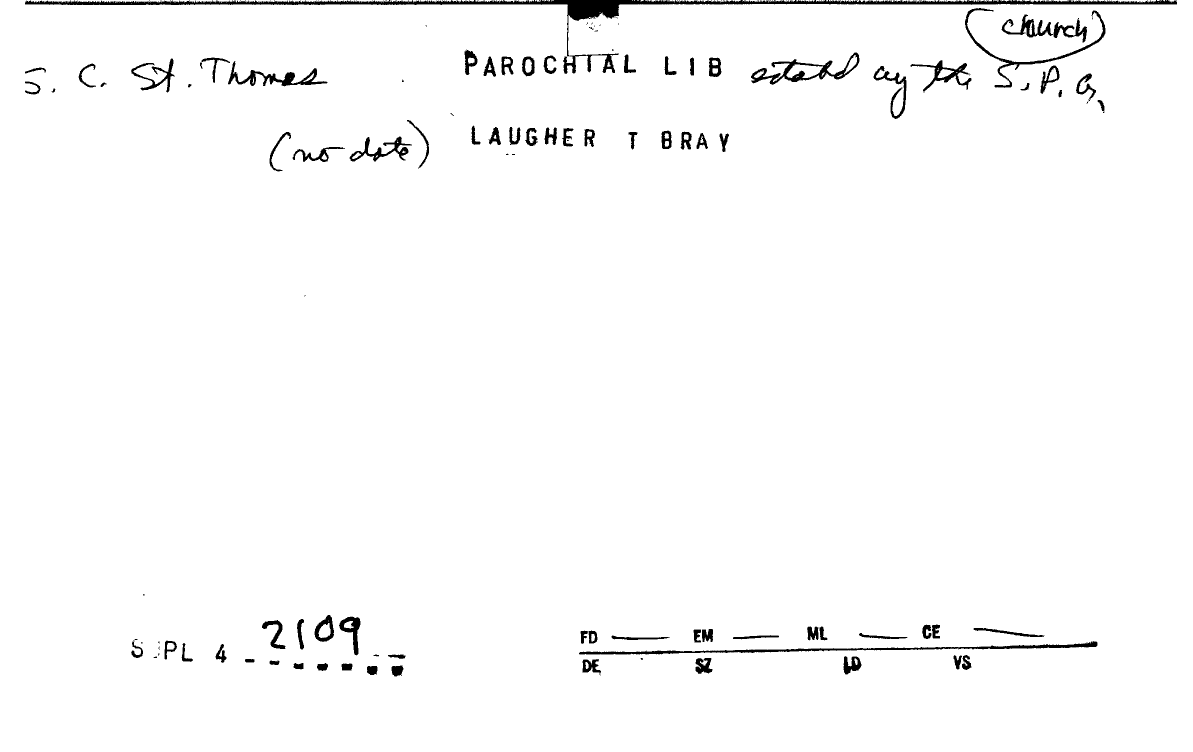 (church)
S. C. St. Thomas PAROCHIAL LIB estabd by the S. P. G.
(no date) LAUGHER T BRAY
SUPL 4 2109
FD EM ML CE
DE SZ LD VS